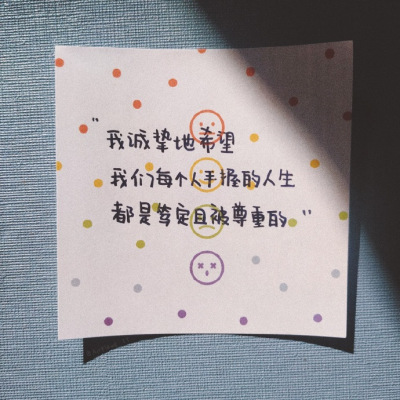 "我诚挚地希望
我们每个人手握的人生
都是笃定且被尊重的"